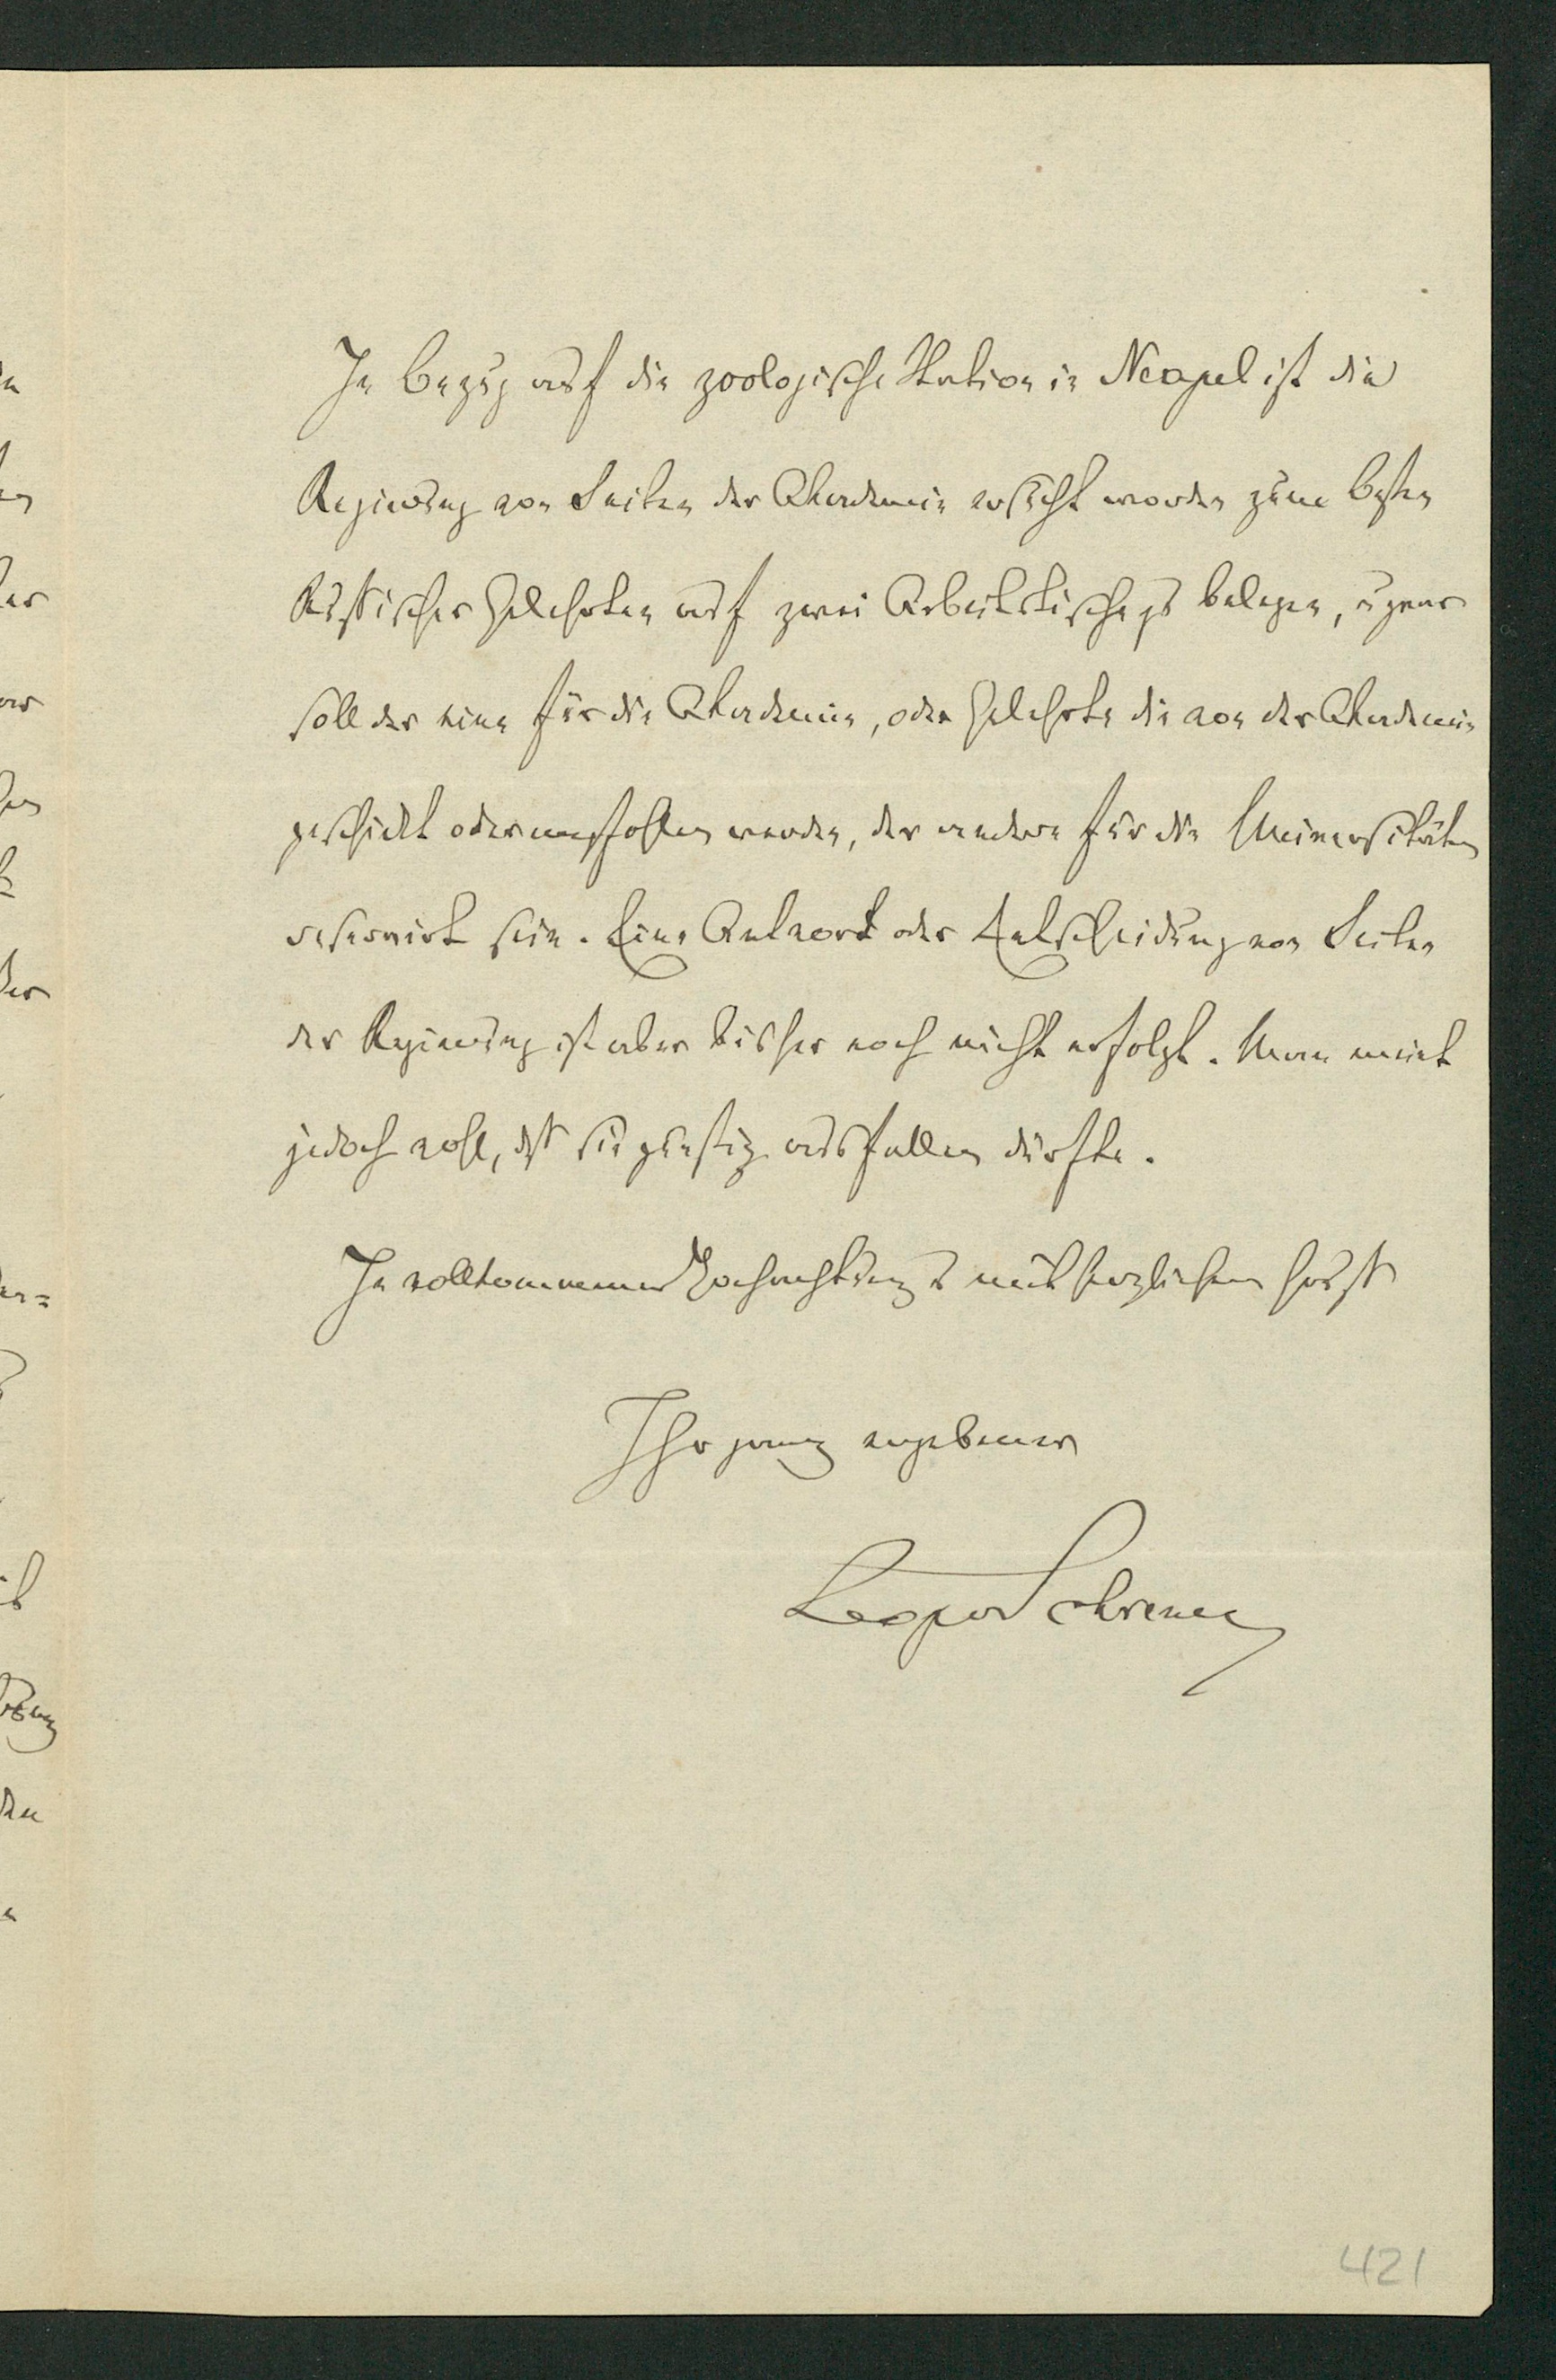 In Bezug auf die zoologische Station in Neapel ist die
Regierung von Seiten der Akademie ersucht worden zum Besten
Russischer Gelehrten auf zwei Arbeitstische zu belegen, u zwar
soll der eine für die Akademie, oder Gelehrte die von der Akademie
geschickt oder empfohlen werden, der andere für die Universitäten
reservirt sein. Eine Antwort oder Entscheidung von Seiten
der Regierung ist aber bisher noch nicht erfolgt. Man meint
jedoch wohl, dß sie günstig ausfallen dürfte.
In vollkommener Hochachtung u mit herzlichem Gruß
Ihr ganz ergebener
Leopold Schrenck
421